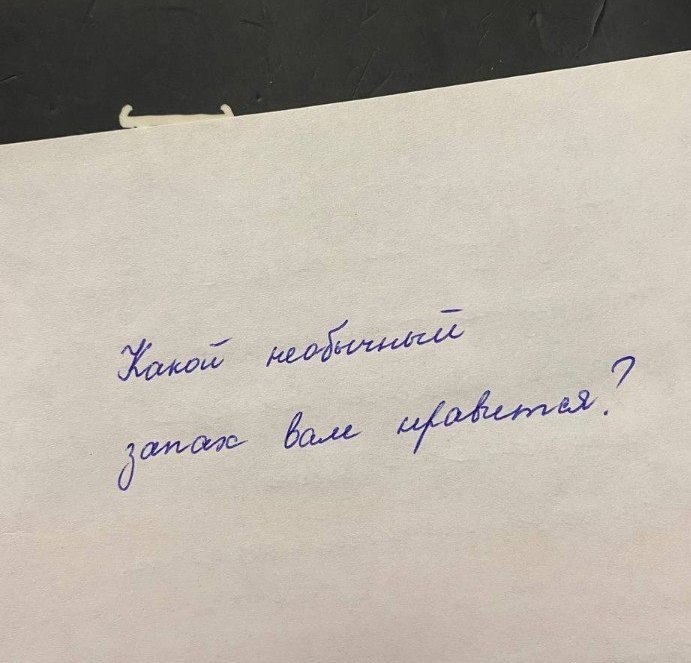 Какой необычный
запах вам нравится?